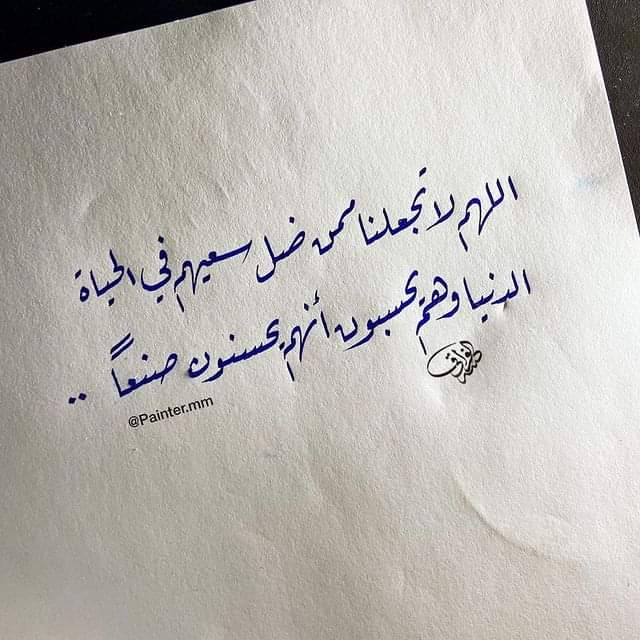 اللهم لا تجعلنا ممن ضل سعيهم في الحياة
الدنيا وهم يحسبون أنهم يحسنون صنعاً ..
@Painter.mm